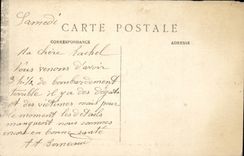 Samedi
CARTE POSTALE
CORRESPONDANCE
ADRESSE
Ma chère Rachel
Nous venons d'avoir
de bombardement
terrible il y a des dégats
et des victimes mais pour
le moment les détails
manquent nous sommes
tous en bonne santé